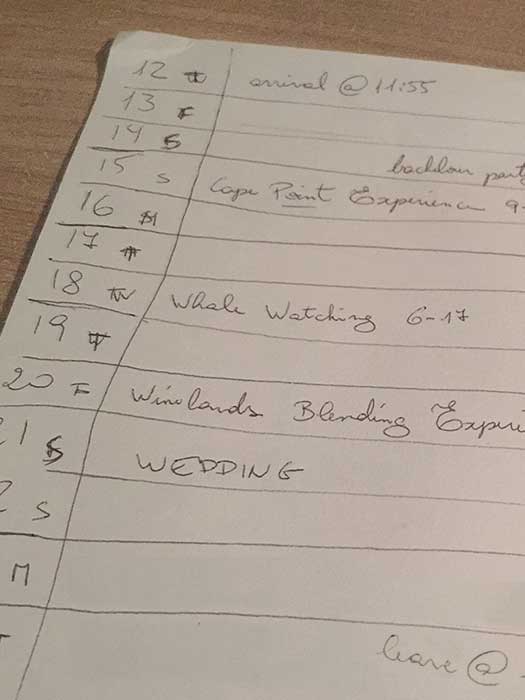 12 T arrival @ 11:55
13 F
14 S
15 S Cape Point Experience 9-
16 M
17 T
18 W Whale Watching 6-17
19 T
20 F Winelands Blending Experi
21 S WEDDING
2 S
M
leave @